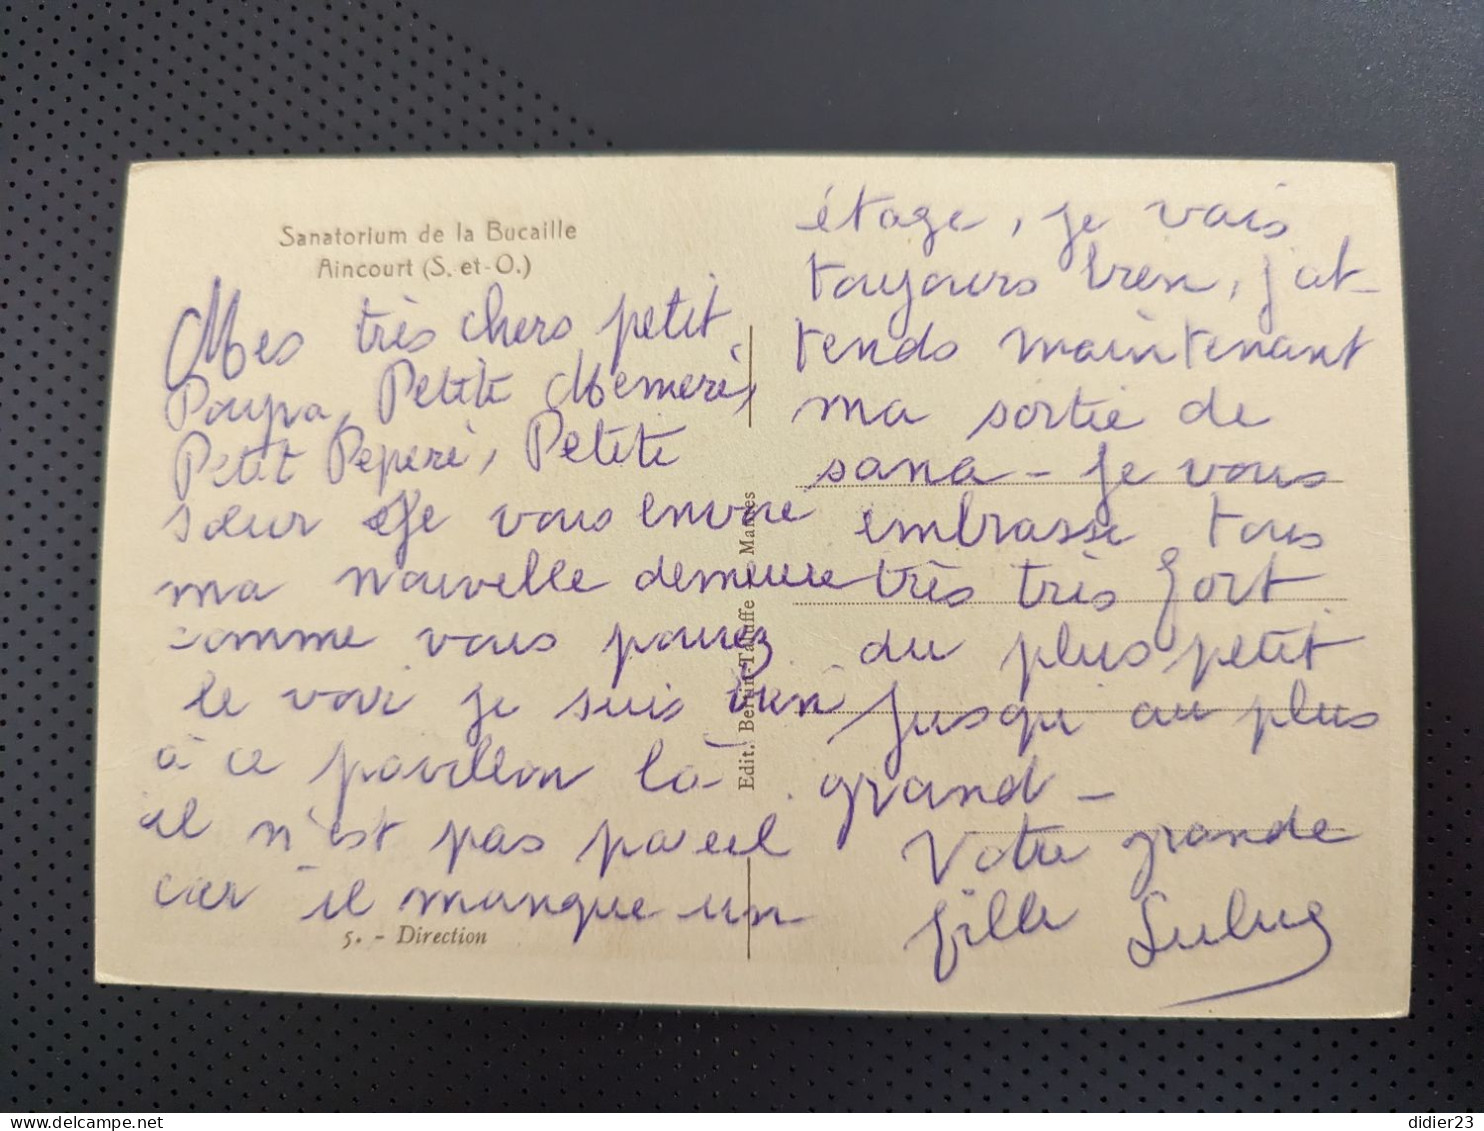 Sanatorium de la Bucaille
Aincourt (S.-et-O.)
Mes très chers petit
Poupa, Petite Memerè,
Petit Peperè, Petite
sœur Je vous envoie
ma nouvelle demeure
comme vous pouvez
le voir je suis bien
à ce pavillon là
il n'est pas pareil
car il manque un
5. - Direction
Edit. Bertin-Taluffe Mantes
étage, je vais
toujours bien, j'at-
tends maintenant
ma sortie de
sana - Je vous
embrasse tous
très très fort
du plus petit
jusqu au plus
grand -
Votre grande
fille Lulus
didier23